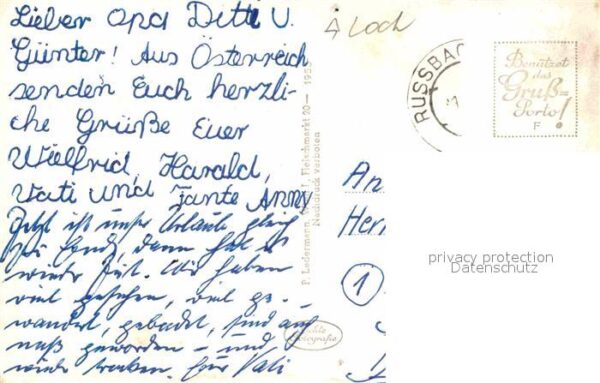 Lieber Opa Ditti u.
Günter! Aus Österreich
senden Euch herzli-
che Grüße Euer
Wielfrid, Harald,
Vati und Tante Anny
Jetzt ist unser Urlaub gleich
zu Ende, dann hat es
wieder Zeit. Wir haben
viel gesehen, viel ge-
wandert, gebadet, sind auch
naß geworden - und
wieder trocken. Euer Vati
4 Loch
RUSSBAC
Benützet
das
Gruß=
Porto!
F
P. Ledermann, Wien I, Fleischmarkt 20 — 1955
Nachdruck verboten
An
Her
1
privacy protection
Datenschutz